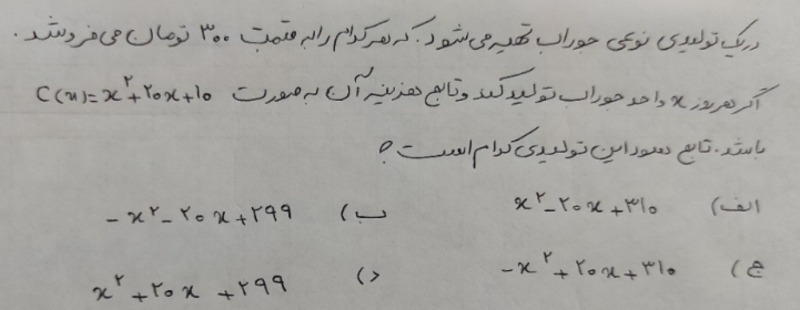 در یک تولیدی نوعی جوراب تهیه می شود که هر کدام را به قیمت ۳۰۰ تومان می فروشد.
اگر هر روز x واحد جوراب تولید کند و تابع هزینه آن به صورت C(x)=x²+۲۰x+۱۰
باشد. تابع سود این تولیدی کدام است؟
الف) x²-۲۰x+۳۱۰ ب) -x²-۲۰x+۲۹۹
ج) -x²+۲۰x+۳۱۰ د) x²+۲۰x+۲۹۹